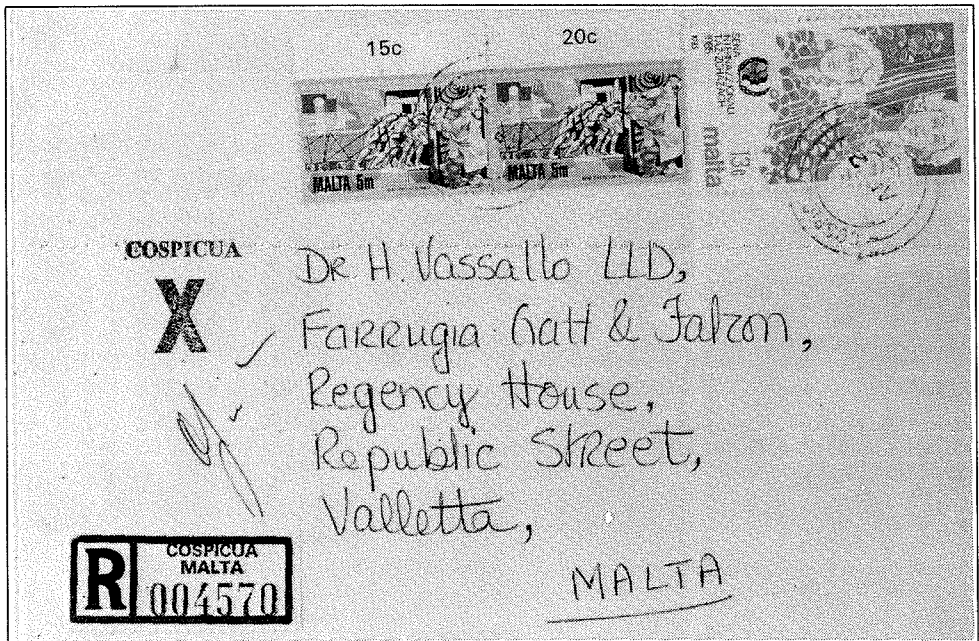 15c 20c
MALTA 5m MALTA 5m
malta
COSPICUA
X
Dr H. Vassallo LLD,
Farrugia Gatt & Falzon,
Regency House,
Republic Street,
Valletta,
MALTA
R
COSPICUA
MALTA
004570